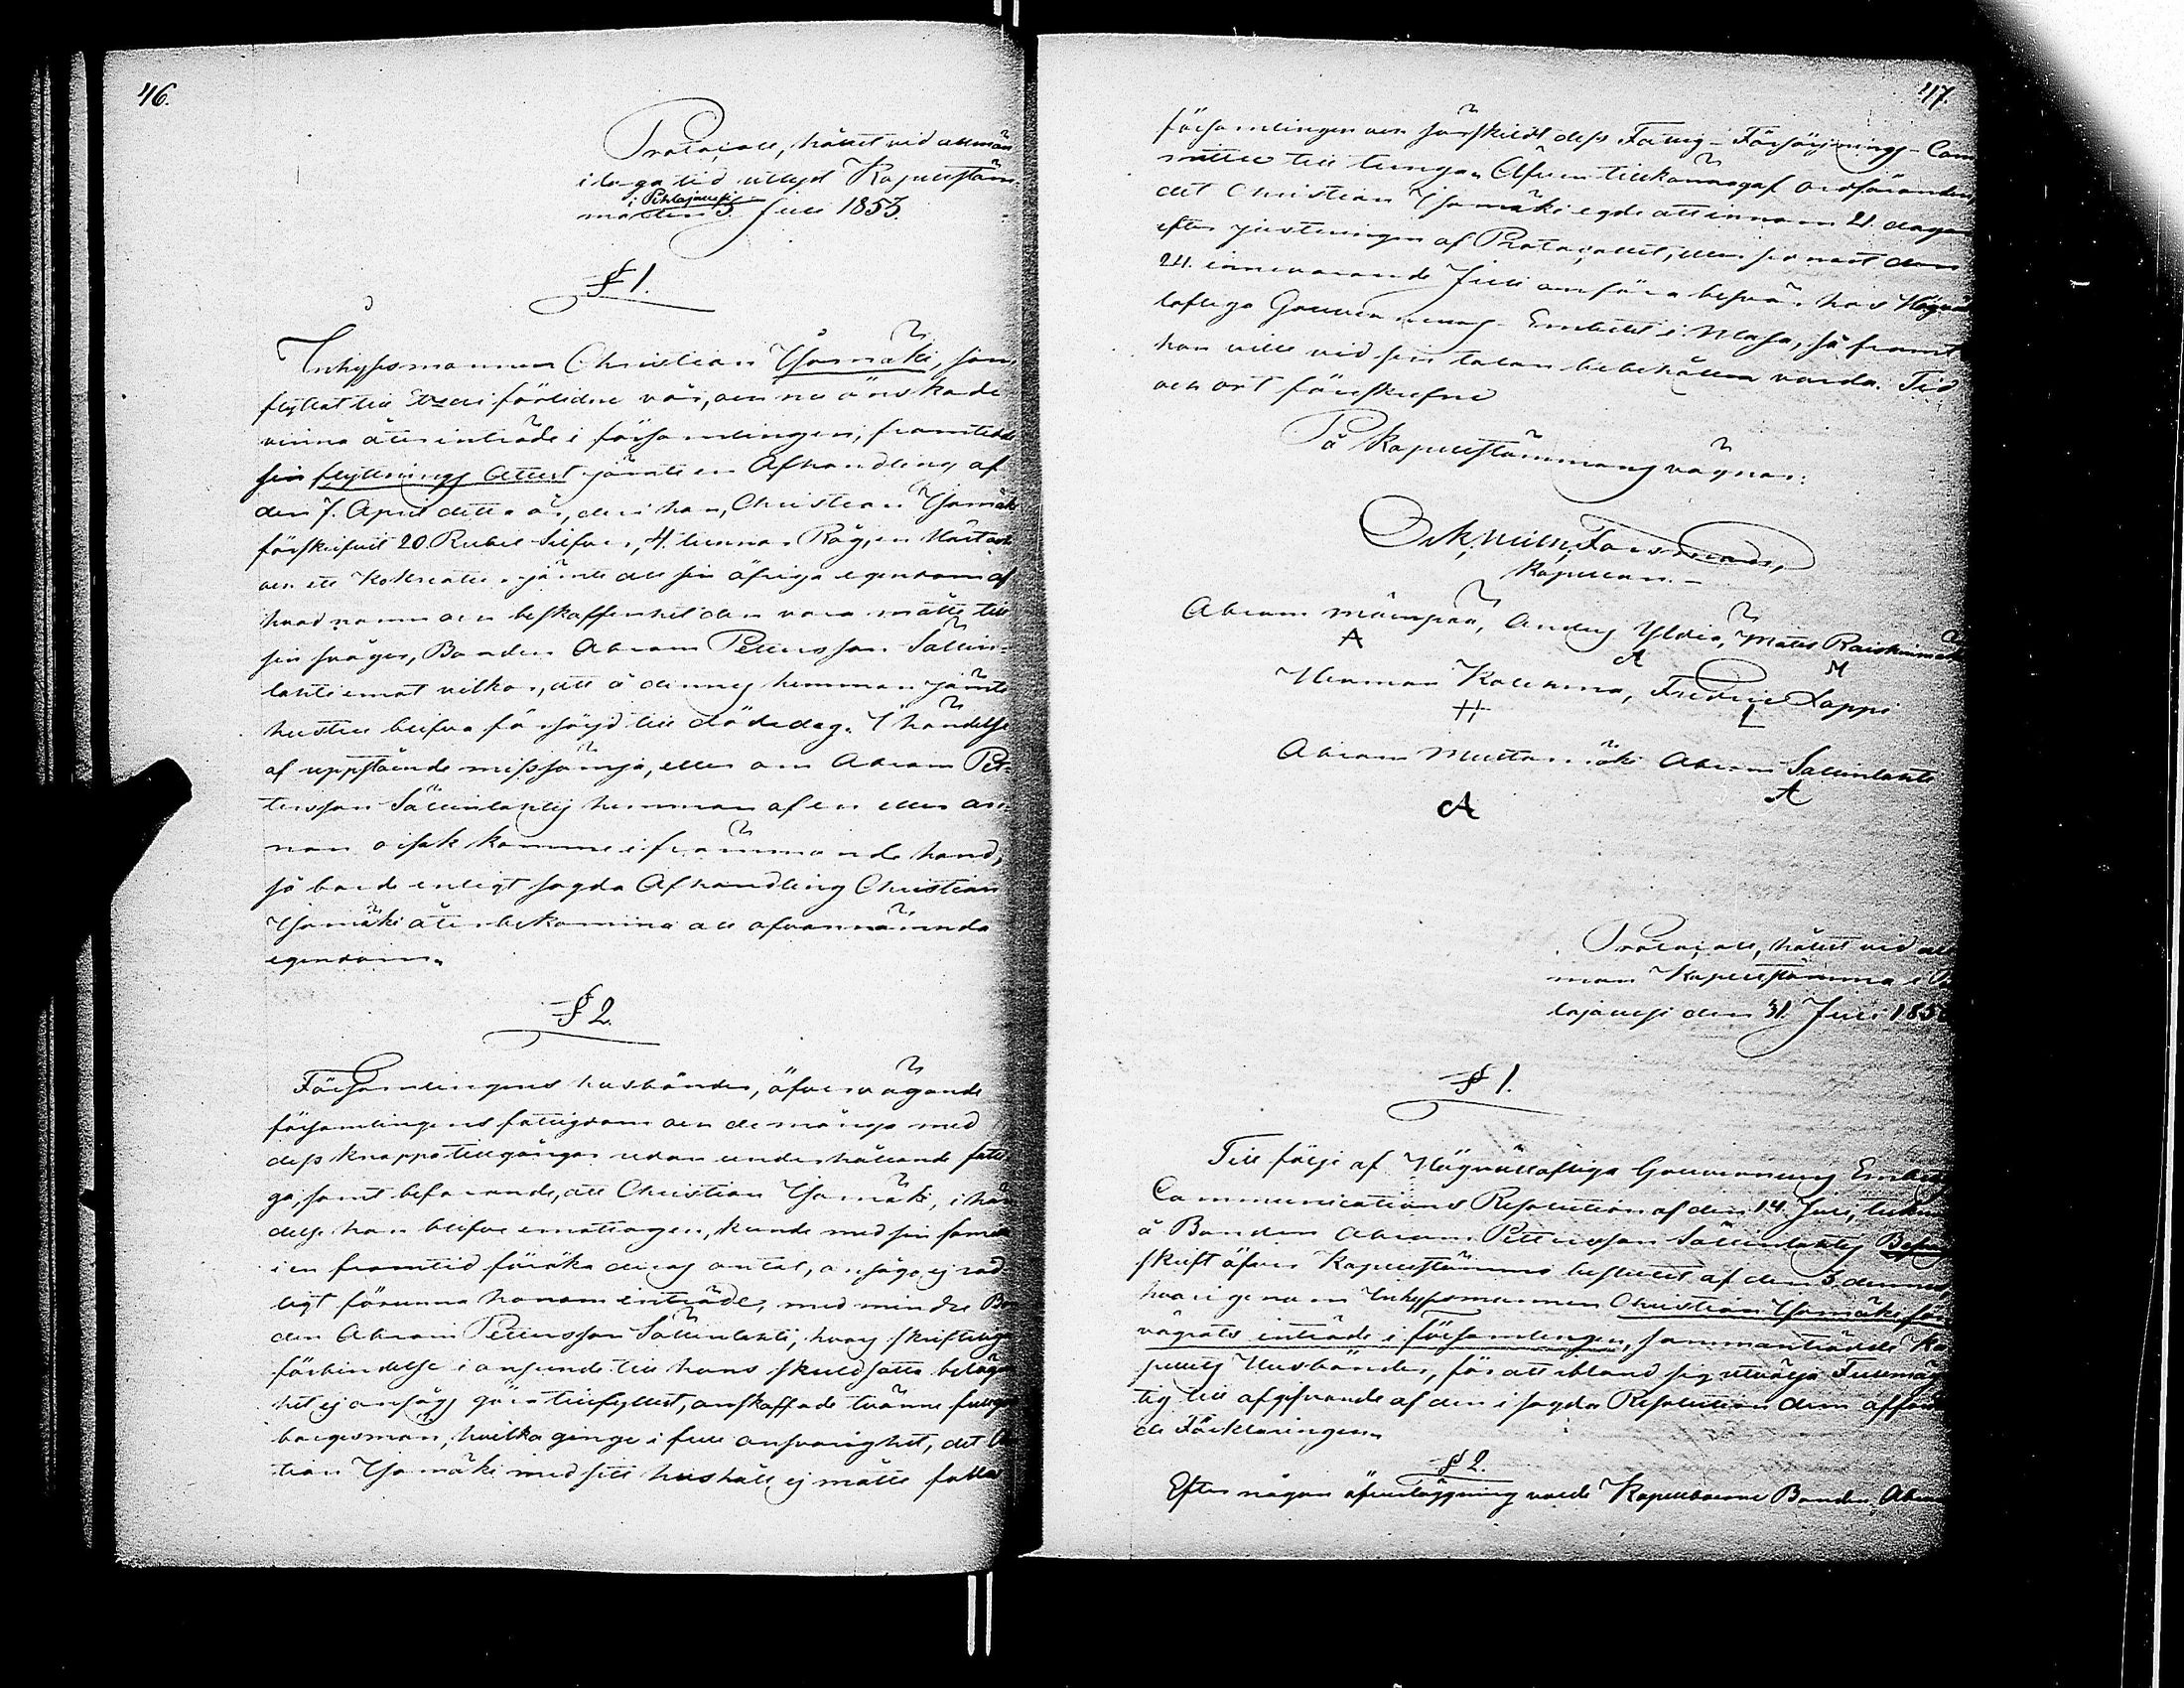 46.
Protocoll, hållet vid allmän
i laga tid utlyst Kapellstäm-
i Pihlajavesi
ma den 3. Juli 1853.
§ 1.
Inhysesmannen Christian Ysomäki, som
flyttat till Etseri förlidne vår, och nu önskade
vinna återinträde i församlingen, framtedde
sin flyttnings Attest jämte en Afhandling af
den 7. April detta år, deri han, Christian Ysomäki
förskrifvit 20. Rubel Silfver, 4. tunnor Råg, en Häst
och ett Kokreatur jämte all sin öfriga egendom af
hvad namn och beskaffenhet den vara måtte till
sin svåger, Bonden Abram Pettersson Sällin-
lahti emot vilkor, att å dennes hemman jämte
hustru blifva försörjd till dödedag. I händelse
af uppstående missämja, eller om Abram Pet-
tersson Sällinlahtis hemman af en eller an-
nan orsak komme i främmande hand,
så borde enligt sagda Afhandling Christian
Ysomäki återbekomma all ofvannämnda
egendom.
§ 2.
Församlingens husbönder, öfvervägande
församlingens fattigdom och de många med
dess knappa tillgångar redan underhållande fatti-
ga, samt befarande, att Christian Ysomäki, i hän
delse han blefve emottagen, kunde med sin familj
i en framtid föröka deras antal, ansågo ej råd-
ligt förunna honom inträde, med mindre Bon
den Abram Pettersson Sällinlahti, hvars skriftliga
förbindelse i anseende till hans skuldsatta belägen
het ej ansågs göra tillfyllest, anskaffade tvänne fullgoda
borgesmän, hvilka ginge i full ansvarighet, det Chris
tian Ysomäki med sitt hushåll ej måtte falla
47.
församlingen och särskildt dess Fattig-Försörjnings-Com
mitté till tunga. Äfven tillkännagaf ordföranden,
det Christian Ysomäki egde att innom 21. dagar
efter justeringen af Protocollet, eller sednast den
24. innevarande Juli anföra besvär hos Högväl
lofliga Gouvernements-Embetet i Wasa, så framt
han ville vid sin talan bibehållen varda. Tid
och ort förskrefne
På Kapellstämmans vägnar:
Kapellan.
Abram Mäenpää, Anders Yldiä, Matts Raiskinmäki
A A M
Herman Kolehma, Fredric Lappi
H L
Abram Muttamäki Abram Sällinlahti
A A
Protocoll, hållet vid all
män Kapellstämma i Pih
lajavesi den 31. Juli 185
§ 1.
Till följe af Högvällofliga Gouvernements Embetets
Communications Resolution af den 14. Juli, tecknad
å Bonden Abram Pettersson Sällinlahtis Besvärs
skrift öfver Kapellstämmo beslutet af den 3 dennes,
hvarigenom Inhysesmannen Christian Ysomäki för
vägrats inträde i församlingen, sammanträdde Ka
pellets Husbönder, för att ibland sig utvälja Fullmäg
tig till afgifvande af den i sagda Resolution dem affor
de Förklaringen.
§ 2.
Efter någon öfverläggning valde Kapellboerne Bonden Abram